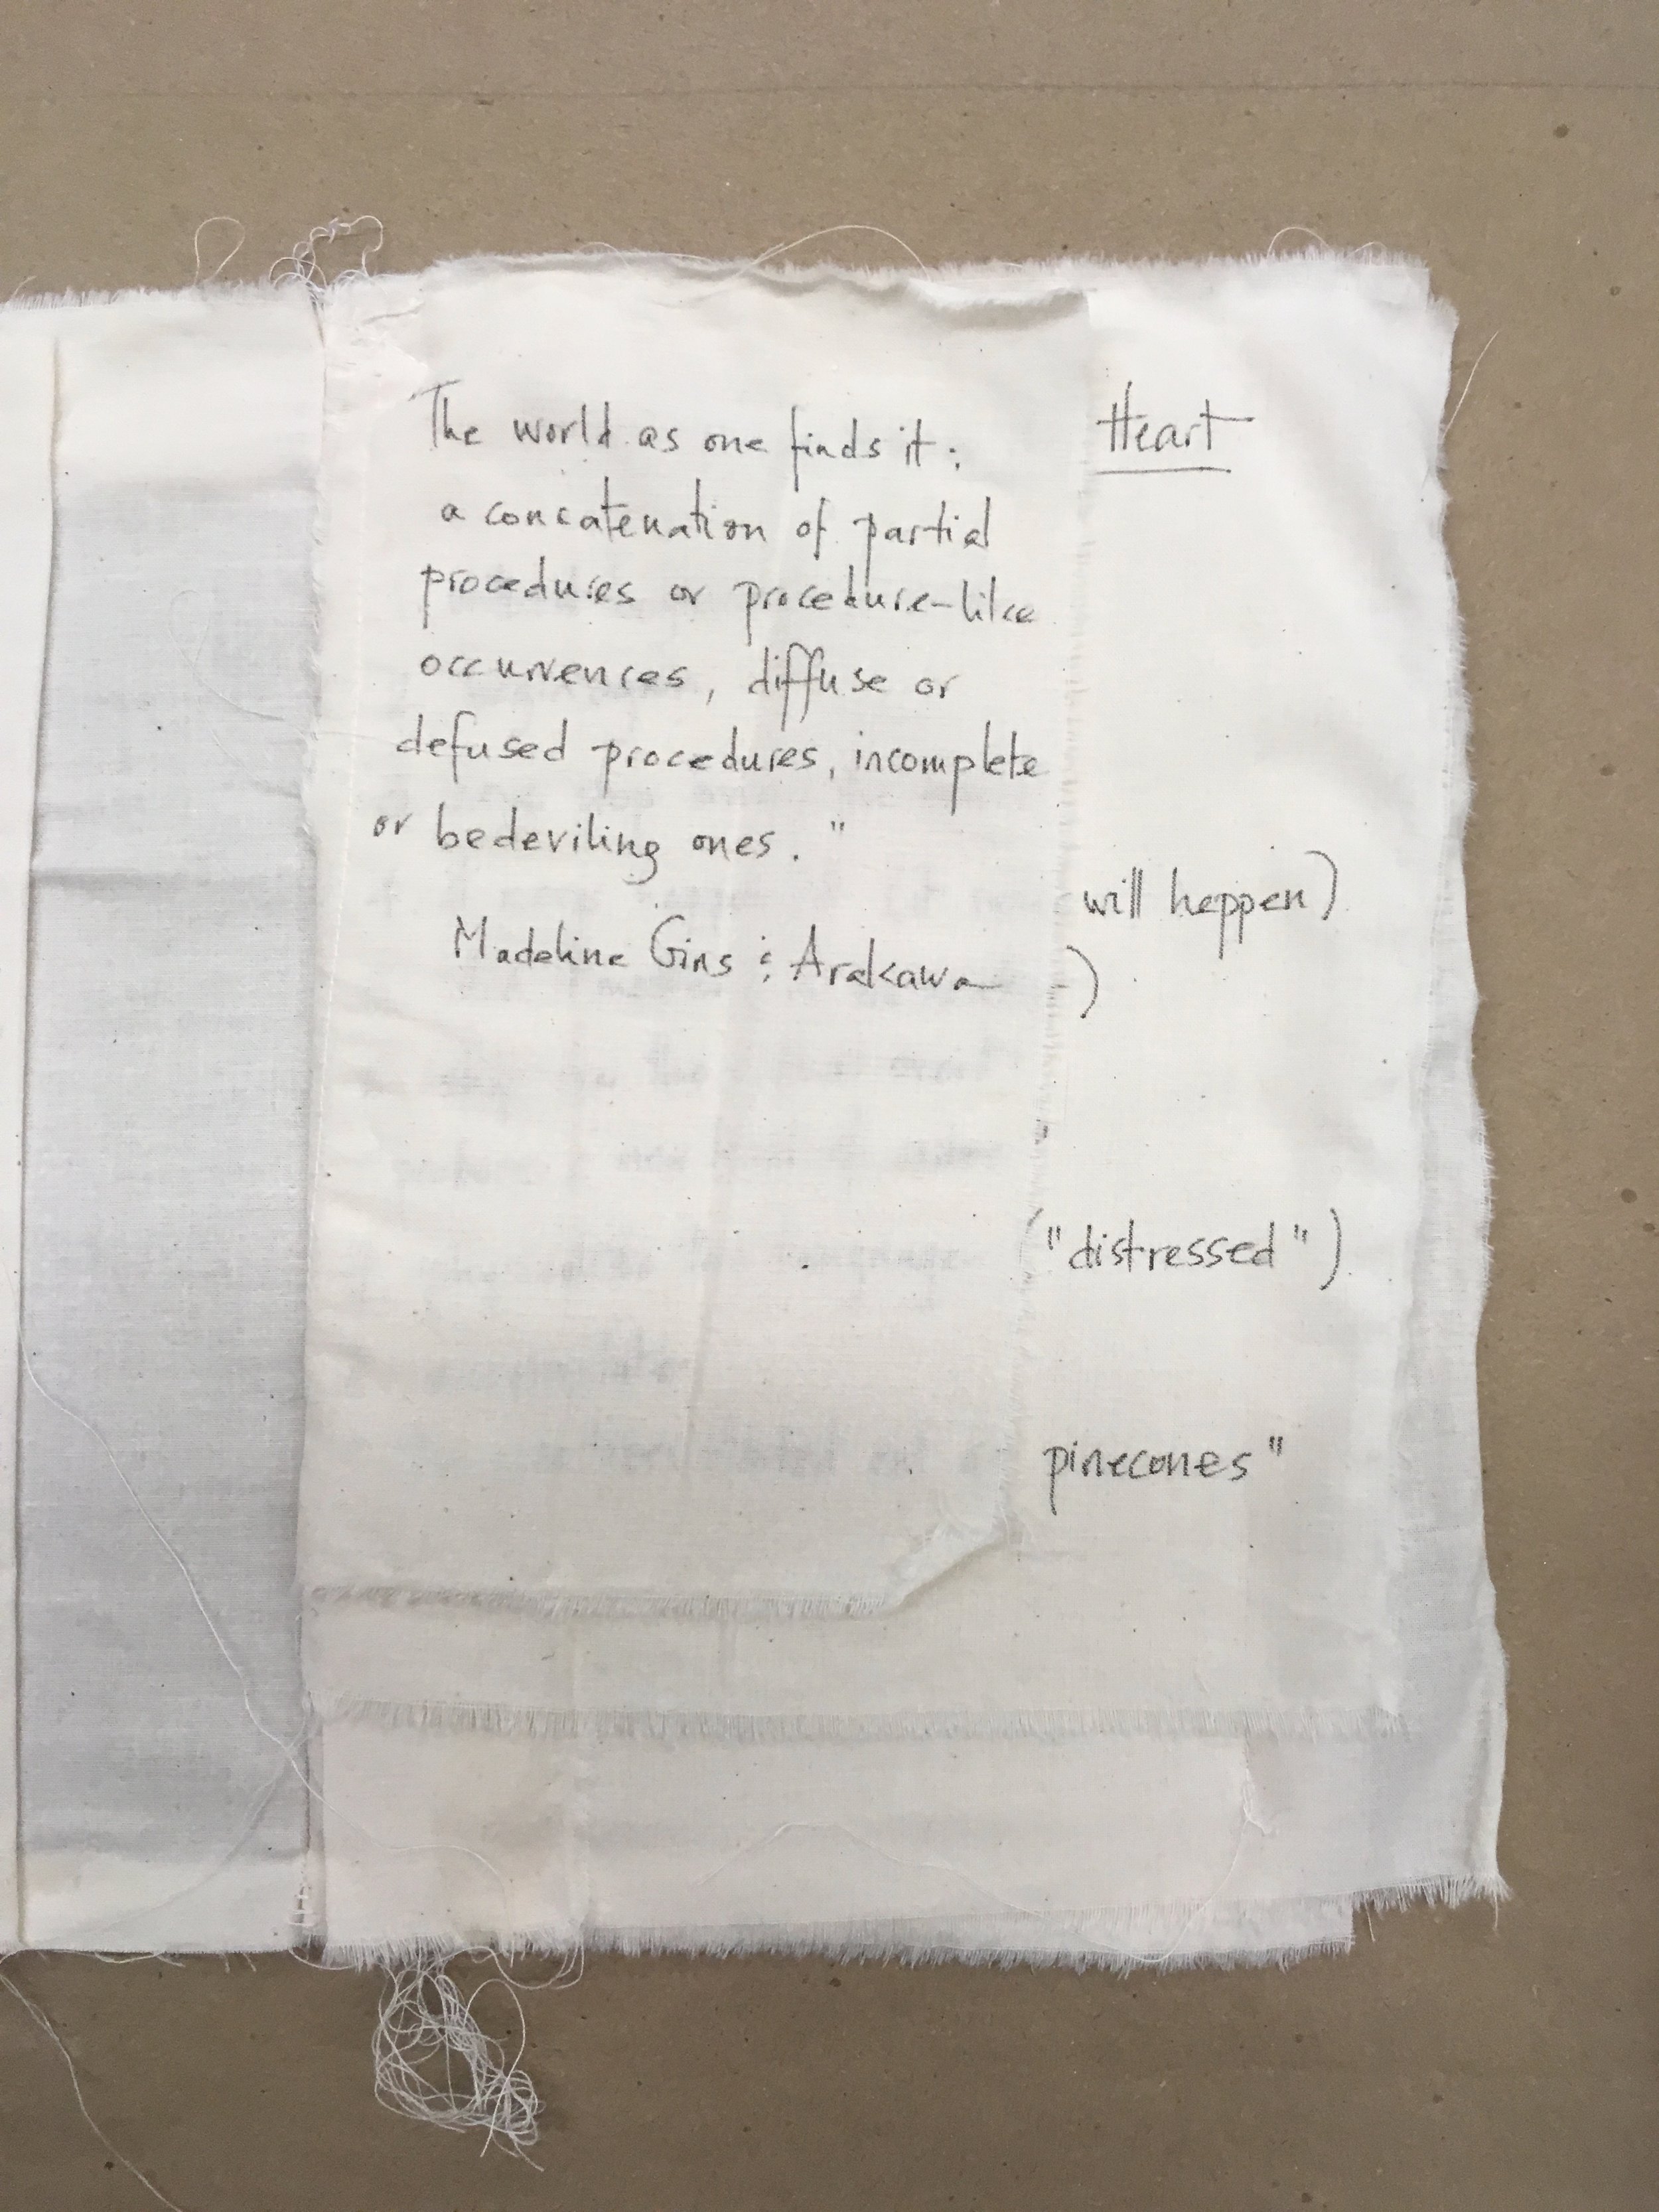 The world as one finds it:
a concatenation of partial
procedures or procedure-like
occurrences, diffuse or
defused procedures, incomplete
or bedeviling ones."
Madeline Gins & Arakawa
Heart
will happen)
)
("distressed")
pinecones"